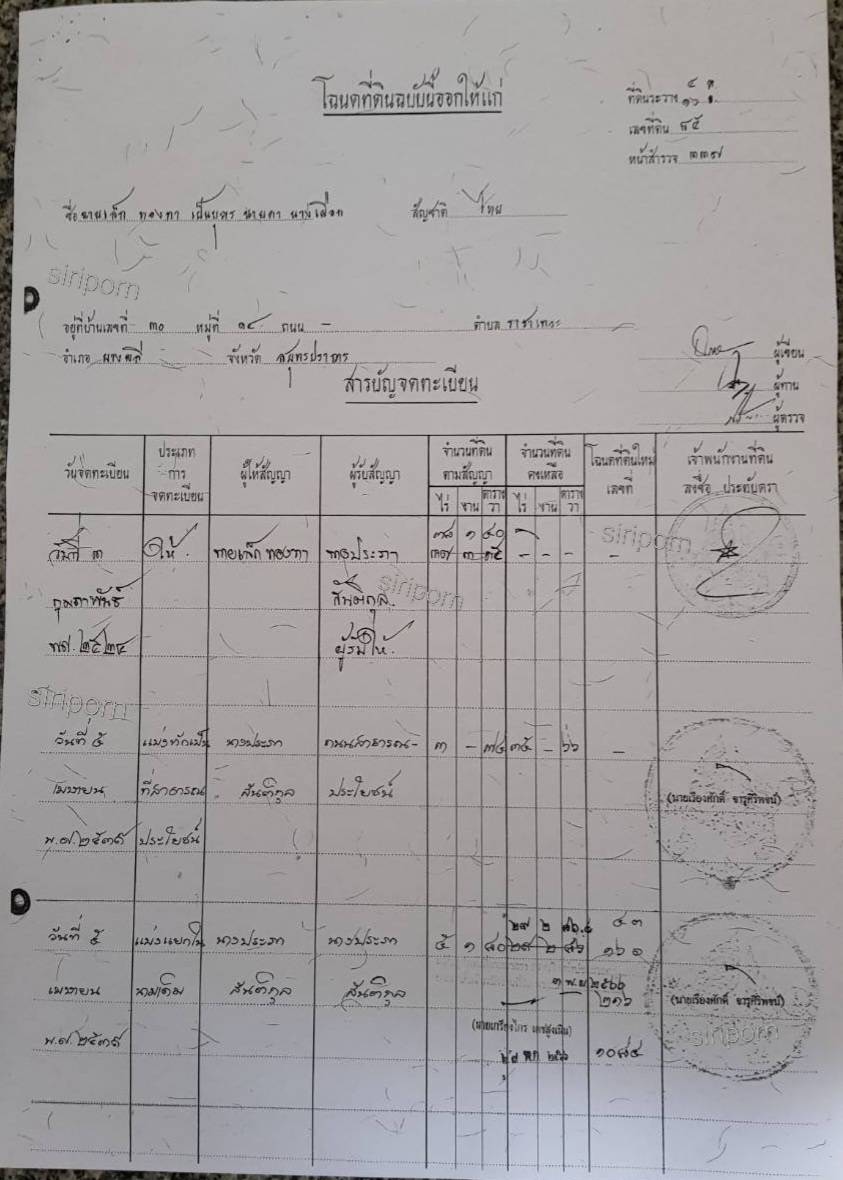 โฉนดที่ดินฉบับนี้ออกให้แก่
ที่ดินระวาง
เลขที่ดิน ๘๕
หน้าสำรวจ ๓๓๗
ชื่อ นายเล็ก ทองภา เป็นบุตร นายดา นาง สัญชาติ ไทย
siriporn
อยู่ที่บ้านเลขที่ ๓๐ หมู่ที่ ๑๔ ถนน - ตำบล ราชาเทวะ
อำเภอ บางพลี จังหวัด สมุทรปราการ
ผู้เขียน
ผู้ทาน
ผู้ตรวจ
สารบัญจดทะเบียน
วันจดทะเบียน ประเภทการจดทะเบียน ผู้ให้สัญญา ผู้รับสัญญา จำนวนที่ดินตามสัญญา จำนวนที่ดินคงเหลือ โฉนดที่ดินใหม่เลขที่ เจ้าพนักงานที่ดิน ลงชื่อ ประทับตรา
ไร่ งาน ตารางวา ไร่ งาน ตารางวา
๓๘ ๑ ๔๐
วันที่ ๓ ให้ นายเล็ก ทองภา ๓๗ ๓ ๓๕ - - - -
siriporn
กุมภาพันธ์ สันติกุล
siriporn
พศ. ๒๕๒๔ ผู้รับให้
siriporn
วันที่ ๕ แบ่งหักเป็น นางประภา ถนนสาธารณ- ๓ - ๗๔ ๓๕ - ๖๖ -
เมษายน ที่สาธารณ สันติกุล ประโยชน์ (นายเรืองศักดิ์ จารุศิริพจน์)
พ.ศ.๒๕๓๕ ประโยชน์
๒๙ ๒ ๘๖.๔ ๔๓
วันที่ ๕ แบ่งแยกใน นางประภา นางประภา ๕ ๑ ๘๐ ๒๙ ๒ ๘๖ ๑๖๑
๑ พ.ย ๒๕๖๖
เมษายน นามเดิม สันติกุล สันติกุล ๒๑๖ (นายเรืองศักดิ์ จารุศิริพจน์)
siriporn
พ.ศ.๒๕๓๕ ๑๐๘๔